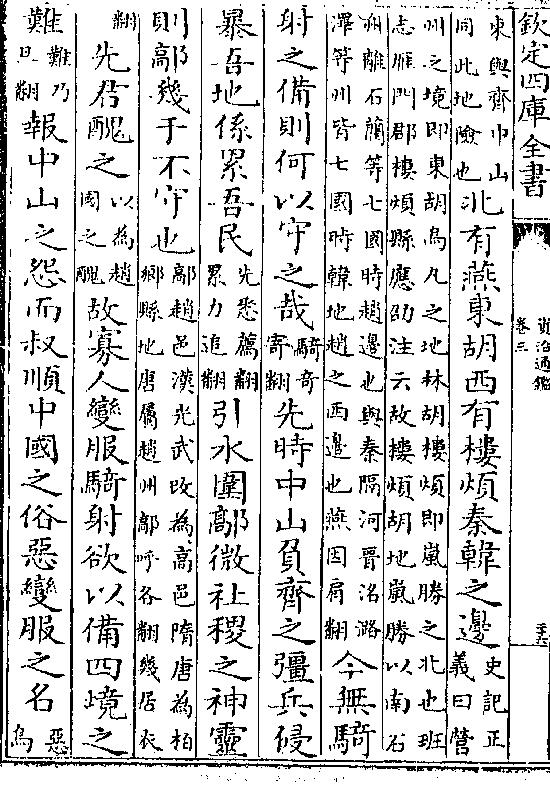 欽定四庫全書
資治通鑑
卷三
東與齊中山同此地險也北有燕東胡西有樓煩秦韓之邊史記正義曰營
州之境即東胡烏丸之地林胡樓煩即嵐勝之北也班
志雁門郡樓煩縣應劭注云故樓煩胡地嵐勝以南石
州離石藺等七國時趙邊也與秦隔河晉洺潞澤等州皆七國時韓地趙之西邊也燕因肩翻今無騎
射之備則何以守之哉騎奇寄翻先時中山負齊之彊兵侵
暴吾地係累吾民先悉薦翻累力追翻引水圍鄗微社稷之神靈
則鄗幾于不守也鄗趙邑漢光武改為高邑隋唐為柏鄉縣地唐屬趙州鄗呼各翻幾居衣
翻先君醜之以為趙國之醜故寡人變服騎射欲以備四境之
難難乃旦翻報中山之怨而叔順中國之俗惡變服之名惡烏